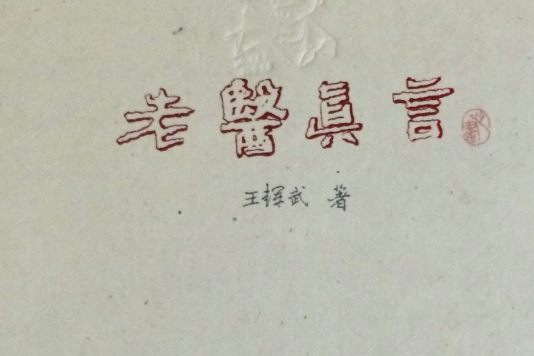 老醫眞言
王辉武 著